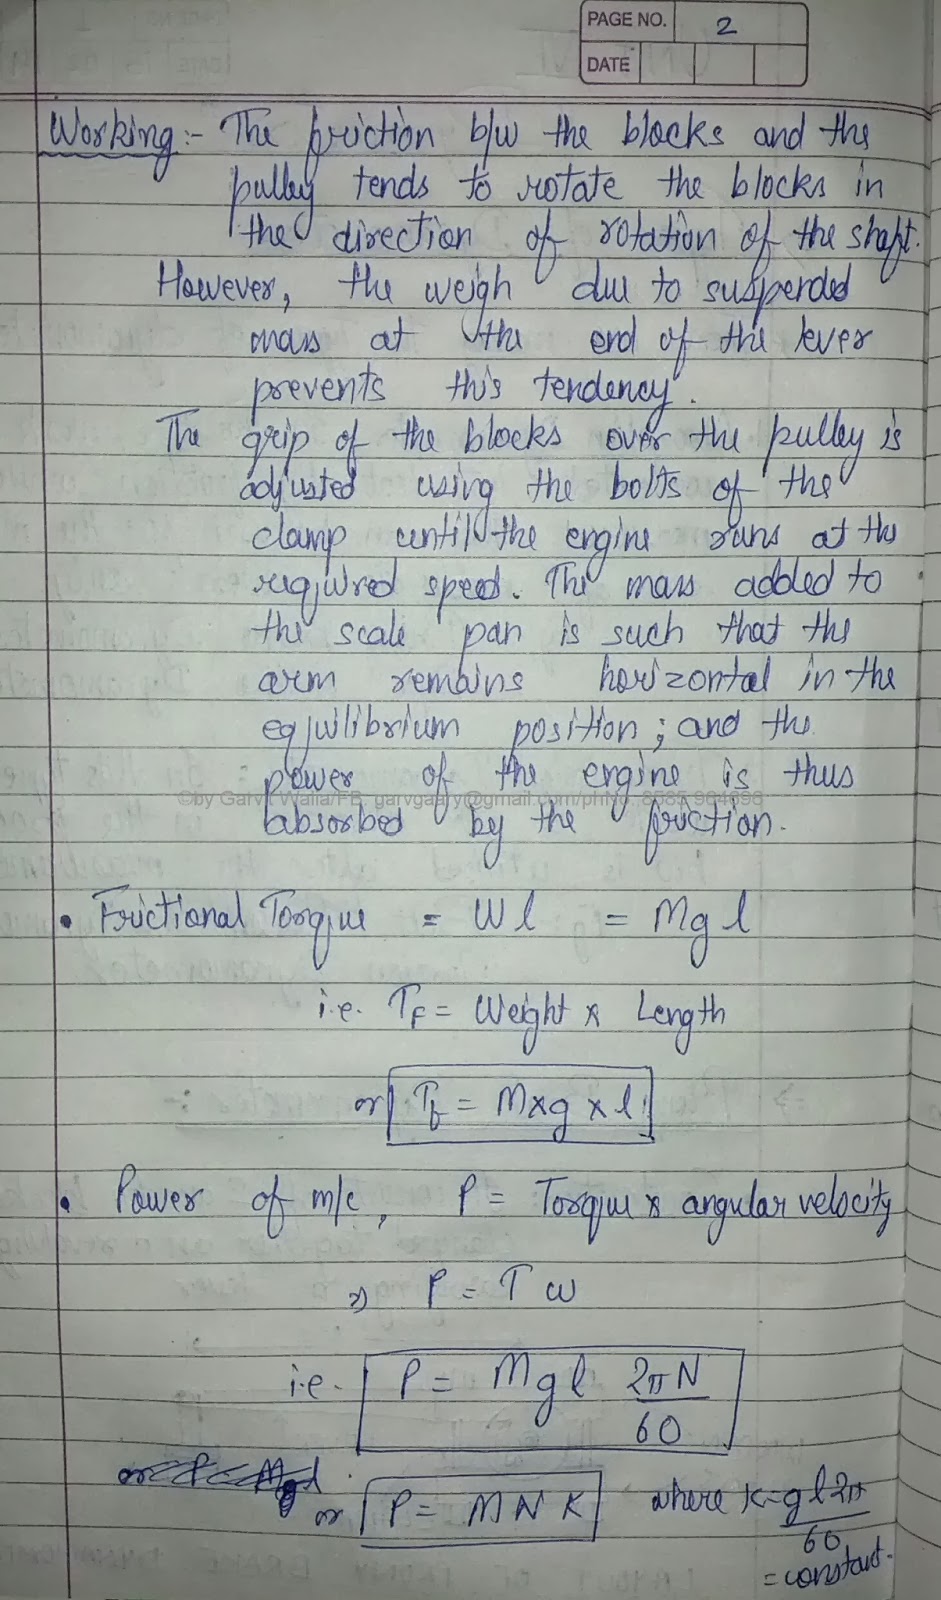 PAGE NO. 2
DATE
Working :- The friction b/w the blocks and the
pulley tends to rotate the blocks in
the direction of rotation of the shaft.
However, the weigh due to suspended
mass at the end of the lever
prevents this tendency.
The grip of the blocks over the pulley is
adjusted using the bolts of the
clamp until the engine runs at the
required speed. The mass added to
the scale pan is such that the
arm remains horizontal in the
equilibrium position ; and the
power of the engine is thus
©by Garvit Walia/FB: garvgaary@gmail.com/phNo.
absorbed by the friction.
• Frictional Torque = Wl = Mgl
i.e. TF = Weight x Length
or Tf = M×g×l
• Power of m/c, P = Torque x angular velocity
⇒ P = T ω
i.e. P = Mgl 2πN/60
or P = Mgl
or P = M N K where K = gl2π/60
= constant.